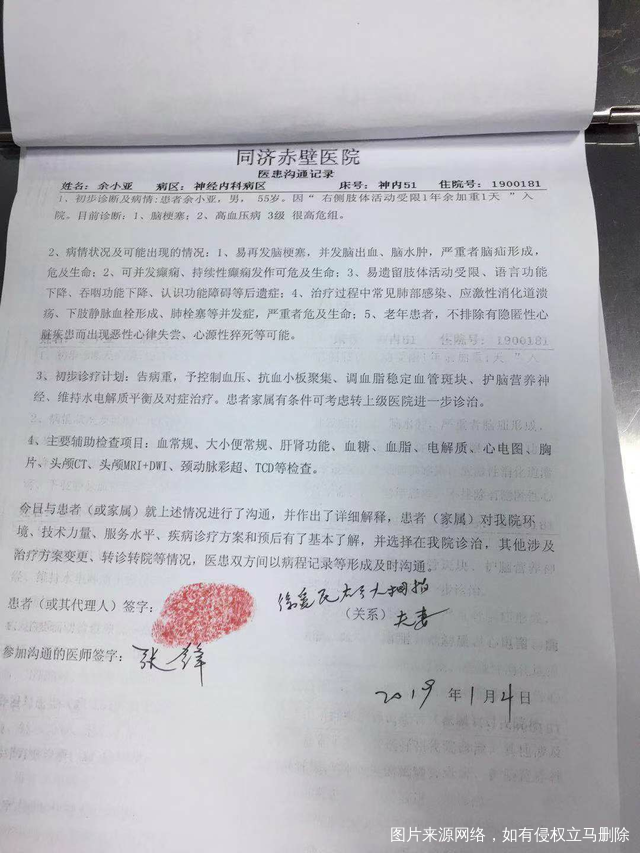 同济赤壁医院
医患沟通记录
姓名: 余小亚 病区: 神经内科病区 床号: 神内51 住院号: 1900181
1、初步诊断及病情:患者余小亚，男， 55岁。因“ 右侧肢体活动受限1年余加重1天 ”入
院。目前诊断：1、脑梗塞；2、高血压病 3级 很高危组。
2、病情状况及可能出现的情况：1、易再发脑梗塞，并发脑出血、脑水肿，严重者脑疝形成，
危及生命；2、可并发癫痫、持续性癫痫发作可危及生命；3、易遗留肢体活动受限、语言功能
下降、吞咽功能下降、认识功能障碍等后遗症；4、治疗过程中常见肺部感染、应激性消化道溃
疡、下肢静脉血栓形成、肺栓塞等并发症，严重者危及生命；5、老年患者，不排除有隐匿性心
脏疾患而出现恶性心律失尝、心源性猝死等可能。
住院号: 1900181
3、初步诊疗计划：告病重，予控制血压、抗血小板聚集、调血脂稳定血管斑块、护脑营养神
经、维持水电解质平衡及对症治疗。患者家属有条件可考虑转上级医院进一步诊治。
4、主要辅助检查项目：血常规、大小便常规、肝肾功能、血糖、血脂、电解质、心电图、胸
片、头颅CT、头颅MRI+DWI、颈动脉彩超、TCD等检查。
今日与患者（或家属）就上述情况进行了沟通，并作出了详细解释，患者（家属）对我院环
境、技术力量、服务水平、疾病诊疗方案和预后有了基本了解，并选择在我院诊治，其他涉及
治疗方案变更、转诊转院等情况，医患双方间以病程记录等形成及时沟通。
患者（或其代理人）签字：
（关系） 夫妻
参加沟通的医师签字： 张锋
2019 年 1 月 4 日
图片来源网络，如有侵权立马删除